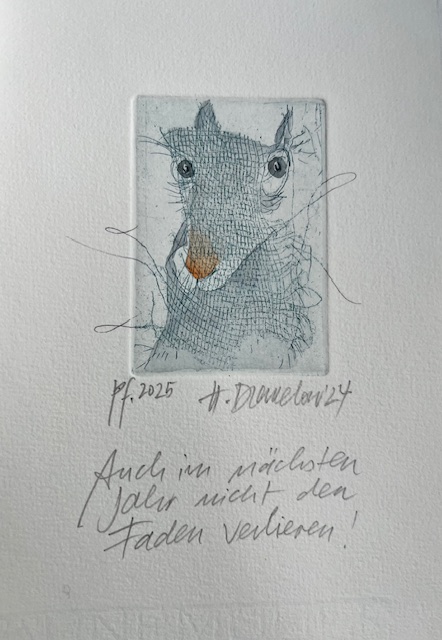 pf. 2025 H. Dramelow '24
Auch im nächsten
Jahr nicht den
Faden verlieren!